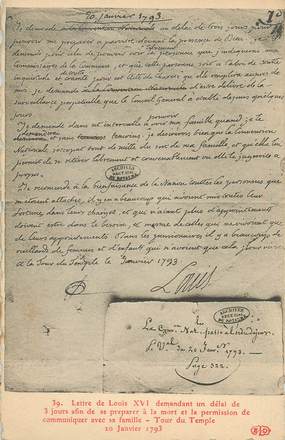 20. janvier 1793.
Je demande un délai de trois jours pour
pouvoir me préparer à paroitre devant la présence de Dieu. Je
demande pour cela de pouvoir voir la personne que j'indiquerai aux
commissaires de la commune, et que cette personne soit à l'abri de toute
inquiétude et de toute crainte pour cet acte de charité qu'elle remplira auprès de
moi. je demande d'être délivré de la
surveillance perpétuelle que le conseil Général a établie depuis quelques
jours.
Je demande dans cet intervalle à pouvoir voir ma famille quand je le
demanderai et sans témoins, je désirerois bien que la Convention
Nationale s'occupat tout de suite du sort de ma famille, et qu'elle lui
permit de se retirer librement et convenablement où elle le jugeroit à
propos.
Je recommande à la bienfaisance de la Nation toutes les personnes qui
m'étoient attachées, il y en a beaucoup qui avoient mis toutes leur
fortune dans leurs charges, et qui n'ayant plus d'appointements
doivent être dans le besoin, et même de celles qui ne vivoient que
de leurs appointements. Dans les pensionnaires il y a beaucoup de
vieillards de femmes et d'enfants qui n'avoient que cela pour vivre.
à la Tour du Temple le Janvier 1793
Louis
La Conv. Nationale
P. Val du 20 Janv. 1793.
Page 322.
39. Lettre de Louis XVI demandant un délai de
3 jours afin de se préparer à la mort et la permission de
communiquer avec sa famille - Tour du Temple
20 Janvier 1793